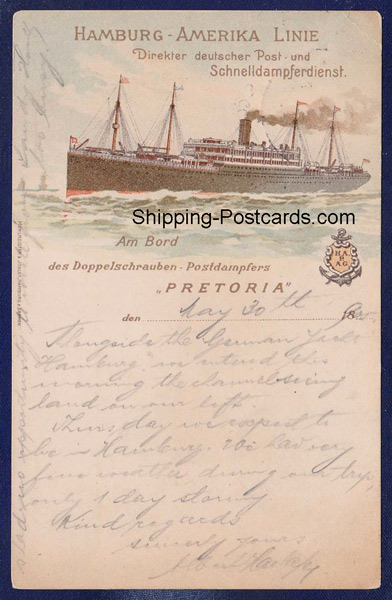 HAMBURG - AMERIKA LINIE
Direkter deutscher Post - und
Schnelldampferdienst.
Shipping-Postcards.com
Am Bord
des Doppelschrauben - Postdampfers
„PRETORIA"
H.A.
P.
A.G.
den May 30th 18
Alongside the German Yacht
"Hamburg" we entered this
morning the channel seeing
land on our left.
Thursday we expect to
be in Hamburg. We had very
fine weather during our trip,
only 1 day stormy.
Kind regards
sincerely yours
Albert